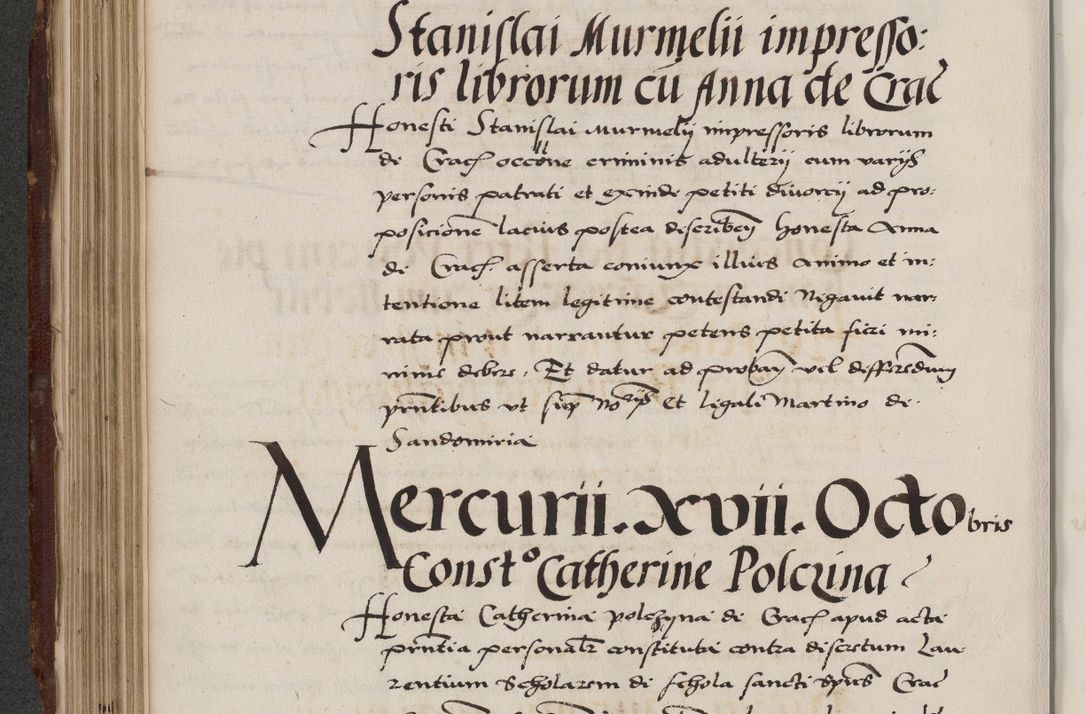 Stanislai Murmelii impresso:
ris librorum cū Anna de Crac̄
Honesti Stanislai Murmelij impressoris librorum
de Crac̄ occone criminis adulterij cum varijs
personis patrati et exinde petiti divorcij ad pro:
posicionē lacius postea describen̄ honesta Anna
de Crac̄ asserta coniunx illius animo et in:
tentione litem legitime contestandi Negavit nar:
rata prout narrantur petens petita fieri mi:
nime debere. Et datur ad proban̄ vel differendum
pn̄tibus vt sup̄ et legali Martino de
Sandomiria
Mercurii. xvii. Octobris
Const° Catherine Polczina
Honesta Catherina polchyna de Crac̄ apud acta
pn̄tia personal̄r constituta contra discretum Lau
rentium Scholarem de schola sancti sp̄us Crac̄